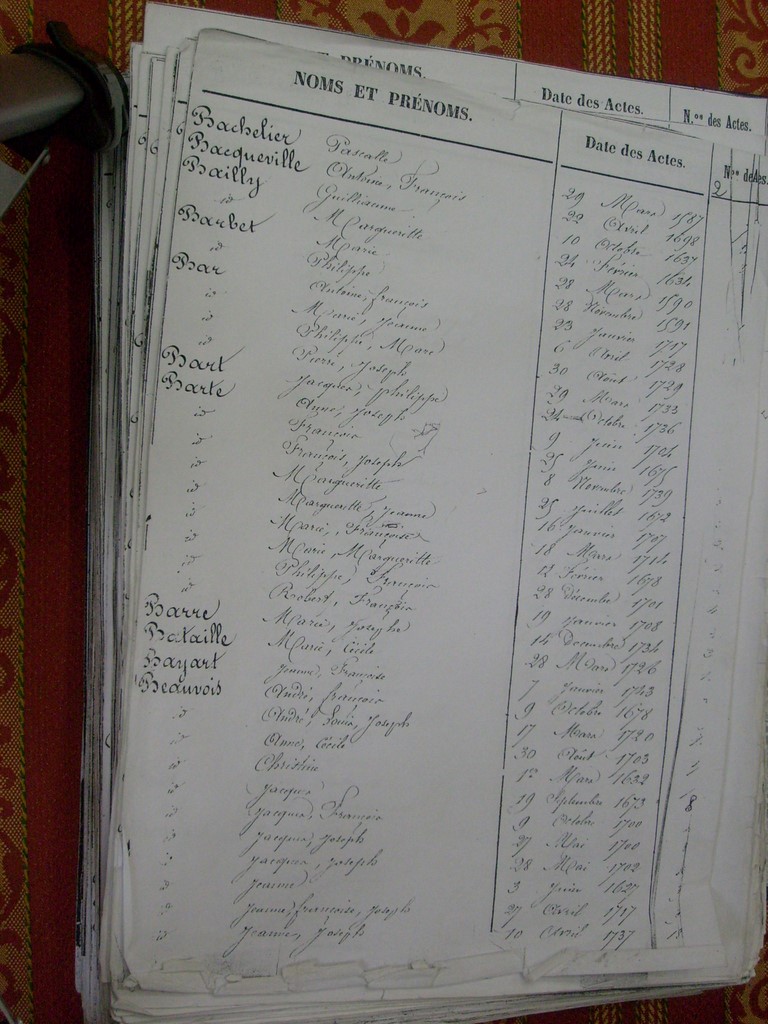 ET PRÉNOMS. Date des Actes. N.os des Actes.
NOMS ET PRÉNOMS. Date des Actes. N.os des Actes.
Bachelier Pascalle 29 Mars 1587
Bacqueville Antoine, François 22 Avril 1698
Bailly Guillianne 10 Octobre 1637
id Margueritte 24 Février 1634
Barbet Marie 28 Mars 1590
id Philippe 28 Novembre 1591
Bar Antoine françois 23 Janvier 1717
id Marie, Jeanne 6 Avril 1728
id Philippe, Marc 30 Août 1729
id Pierre, Joseph 29 Mars 1733
Bart Jacques, philippe 24 Octobre 1736
Barte Anne, Joseph 9 Juin 1704
id François 25 Juin 1675
id François, Joseph 8 Novembre 1739
id Margueritte 25 Juillet 1672
id Margueritte, Jeanne 16 Janvier 1707
id Marie, Françoise 18 Mars 1714
id Marie, Margueritte 12 Février 1678
id Philippe, François 28 Décembre 1701
id Robert, François 19 Janvier 1708
Barre Marie, Josephe 14 Decembre 1734
Bataille Marie, Cécile 28 Mars 1726
Bayart Jeanne, Françoise 7 Janvier 1743
Beauvois André, françois 9 Octobre 1678
id André, Louis, Joseph 17 Mars 1720
id Anne, Cécile 30 Août 1703
id Christine 1er Mars 1632
id Jacques 19 Septembre 1673
id Jacques, François 9 Octobre 1700
id Jacques, Joseph 27 Mai 1700
id Jacques, Joseph 28 Mai 1702
id Jeanne 3 Juin 1627
id Jeanne, françoise, Joseph 27 Avril 1717
id Jeanne, Joseph 10 Avril 1737